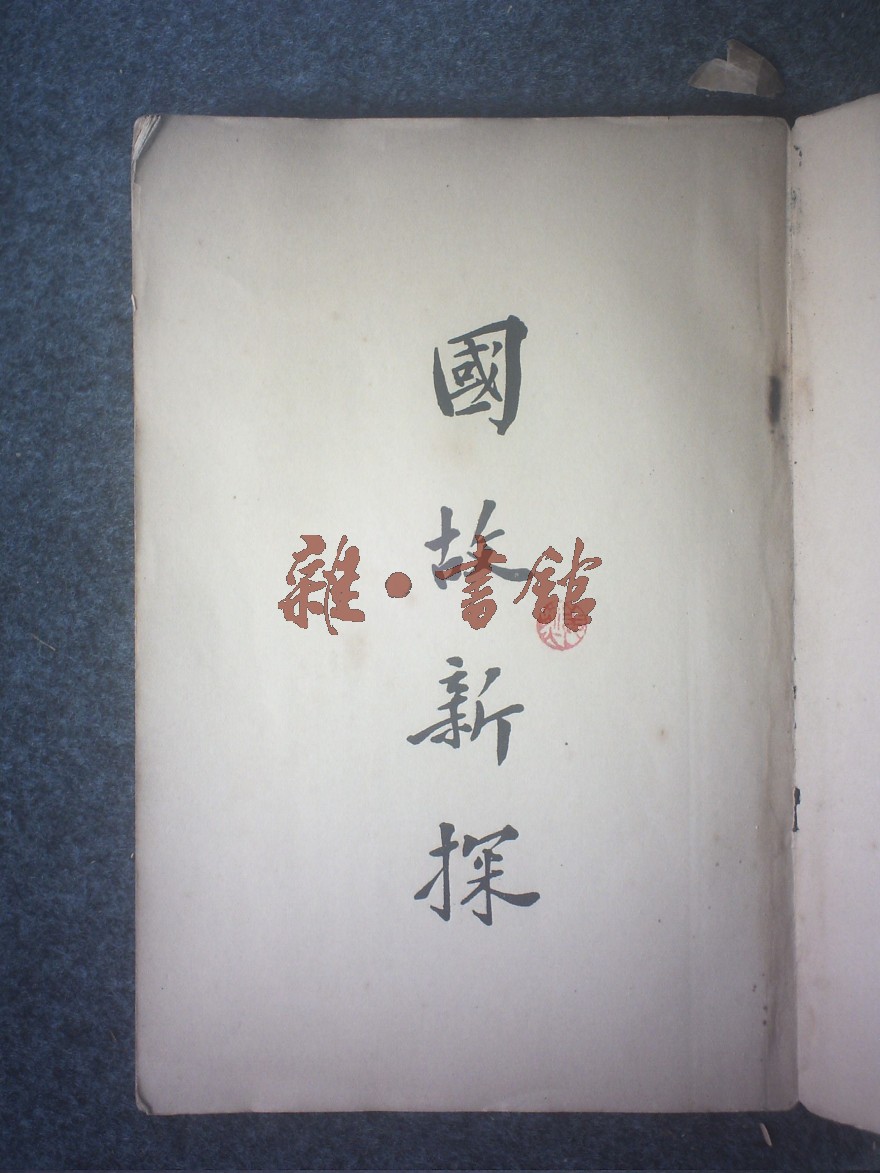 國故新探
雜·書館